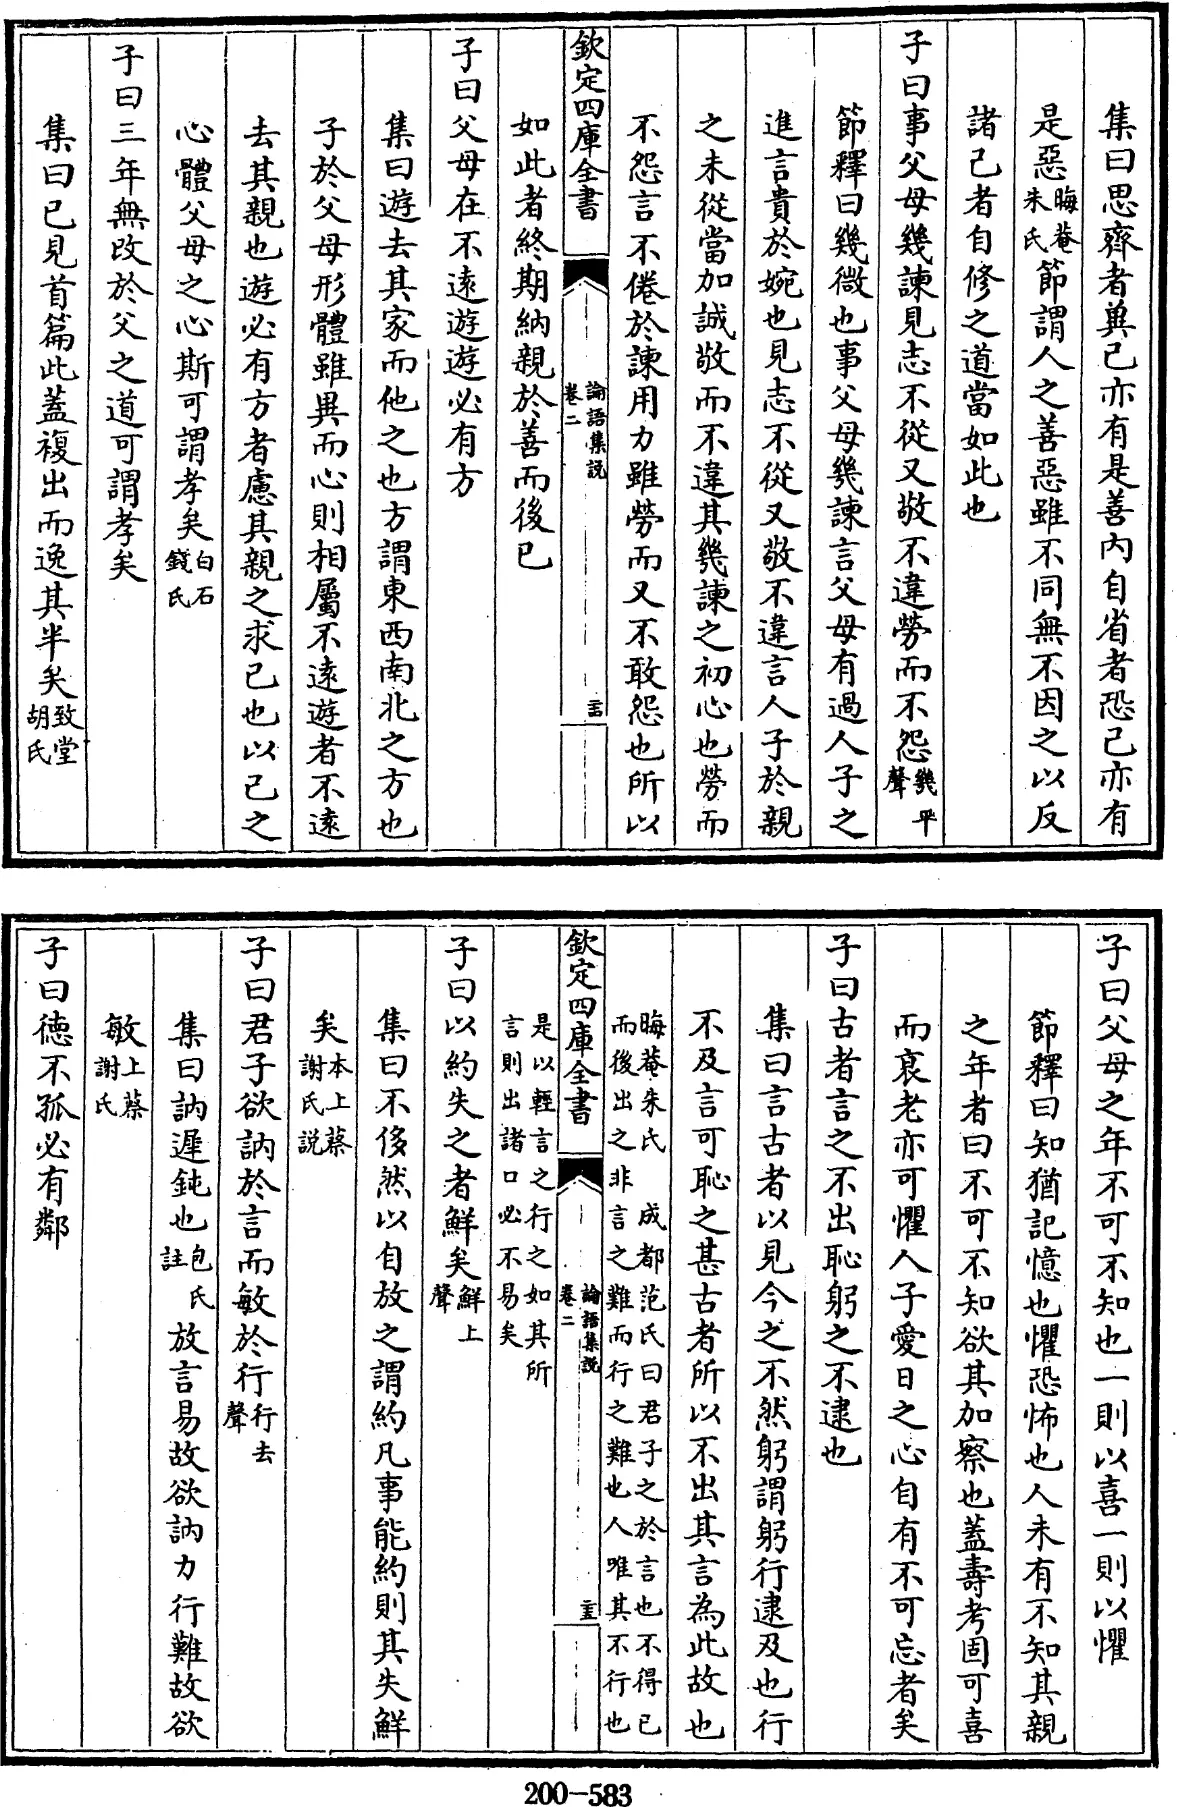 集曰思齊者冀己亦有是善内自省者恐己亦有
是惡晦菴朱氏節謂人之善惡雖不同無不因之以反
諸己者自修之道當如此也
子曰事父母幾諫見志不從又敬不違勞而不怨幾平聲
節釋曰幾微也事父母幾諫言父母有過人子之
進言貴於婉也見志不從又敬不違言人子於親
之未從當加誠敬而不違其幾諫之初心也勞而
不怨言不倦於諫用力雖勞而又不敢怨也所以
欽定四庫全書
論語集説
卷二
如此者終期納親於善而後已
子曰父母在不遠遊遊必有方
集曰遊去其家而他之也方謂東西南北之方也
子於父母形體雖異而心則相屬不遠遊者不遠
去其親也遊必有方者慮其親之求己也以己之
心體父母之心斯可謂孝矣白石錢氏
子曰三年無改於父之道可謂孝矣
集曰已見首篇此蓋複出而逸其半矣致堂胡氏
子曰父母之年不可不知也一則以喜一則以懼
節釋曰知猶記憶也懼恐怖也人未有不知其親
之年者曰不可不知欲其加察也蓋壽考固可喜
而衰老亦可懼人子愛日之心自有不可忘者矣
子曰古者言之不出恥躬之不逮也
集曰言古者以見今之不然躬謂躬行逮及也行
不及言可恥之甚古者所以不出其言為此故也
晦菴朱氏 成都范氏曰君子之於言也不得已
而後出之非言之難而行之難也人唯其不行也
欽定四庫全書
論語集説
卷二
是以輕言之行之如其所
言則出諸口必不易矣
子曰以約失之者鮮矣鮮上聲
集曰不侈然以自放之謂約凡事能約則其失鮮
矣本上蔡謝氏説
子曰君子欲訥於言而敏於行行去聲
集曰訥遲鈍也包氏註放言易故欲訥力行難故欲
敏上蔡謝氏
子曰德不孤必有鄰
200-583